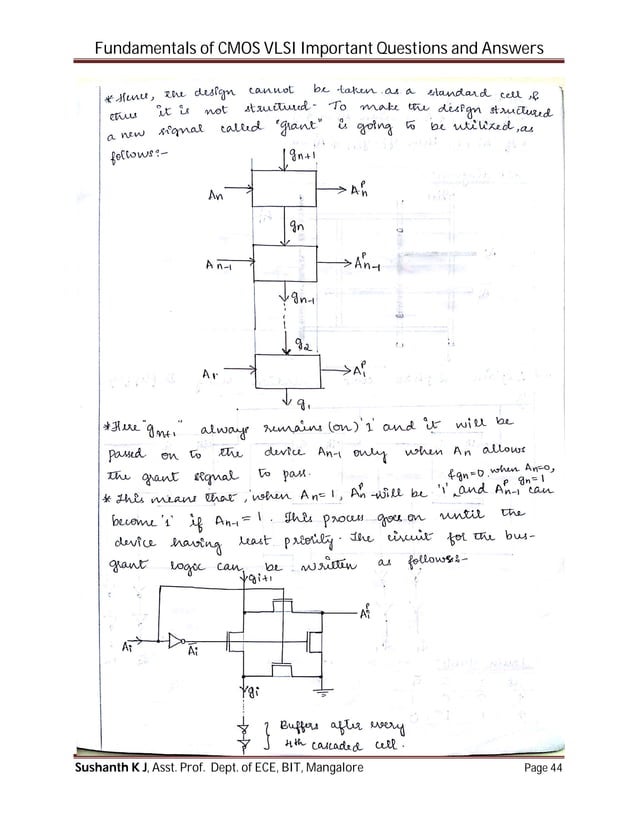 Fundamentals of CMOS VLSI Important Questions and Answers
* Hence, the design cannot be taken as a standard cell &
thus it is not structured. To make the design structured
a new signal called "grant" is going to be utilized, as
follows:-
gn+1
An
Aᵖn
gn
An-1
Aᵖn-1
gn-1
g2
A1
Aᵖ1
g1
* Here "gn+1" always remains (on) '1' and it will be
passed on to the device An-1 only when An allows
the grant signal to pass.
& gn=0, when An=0, gn=1
* This means that, when An=1, Aᵖn will be '1', and Aᵖn-1 can
become '1' if An-1=1. This process goes on until the
device having least priority. The circuit for the bus-
grant logic can be written as follows:-
gi+1
Aᵖi
Ai
A̅i
gi
Buffers after every
4th cascaded cell.
Sushanth K J, Asst. Prof. Dept. of ECE, BIT, Mangalore
Page 44